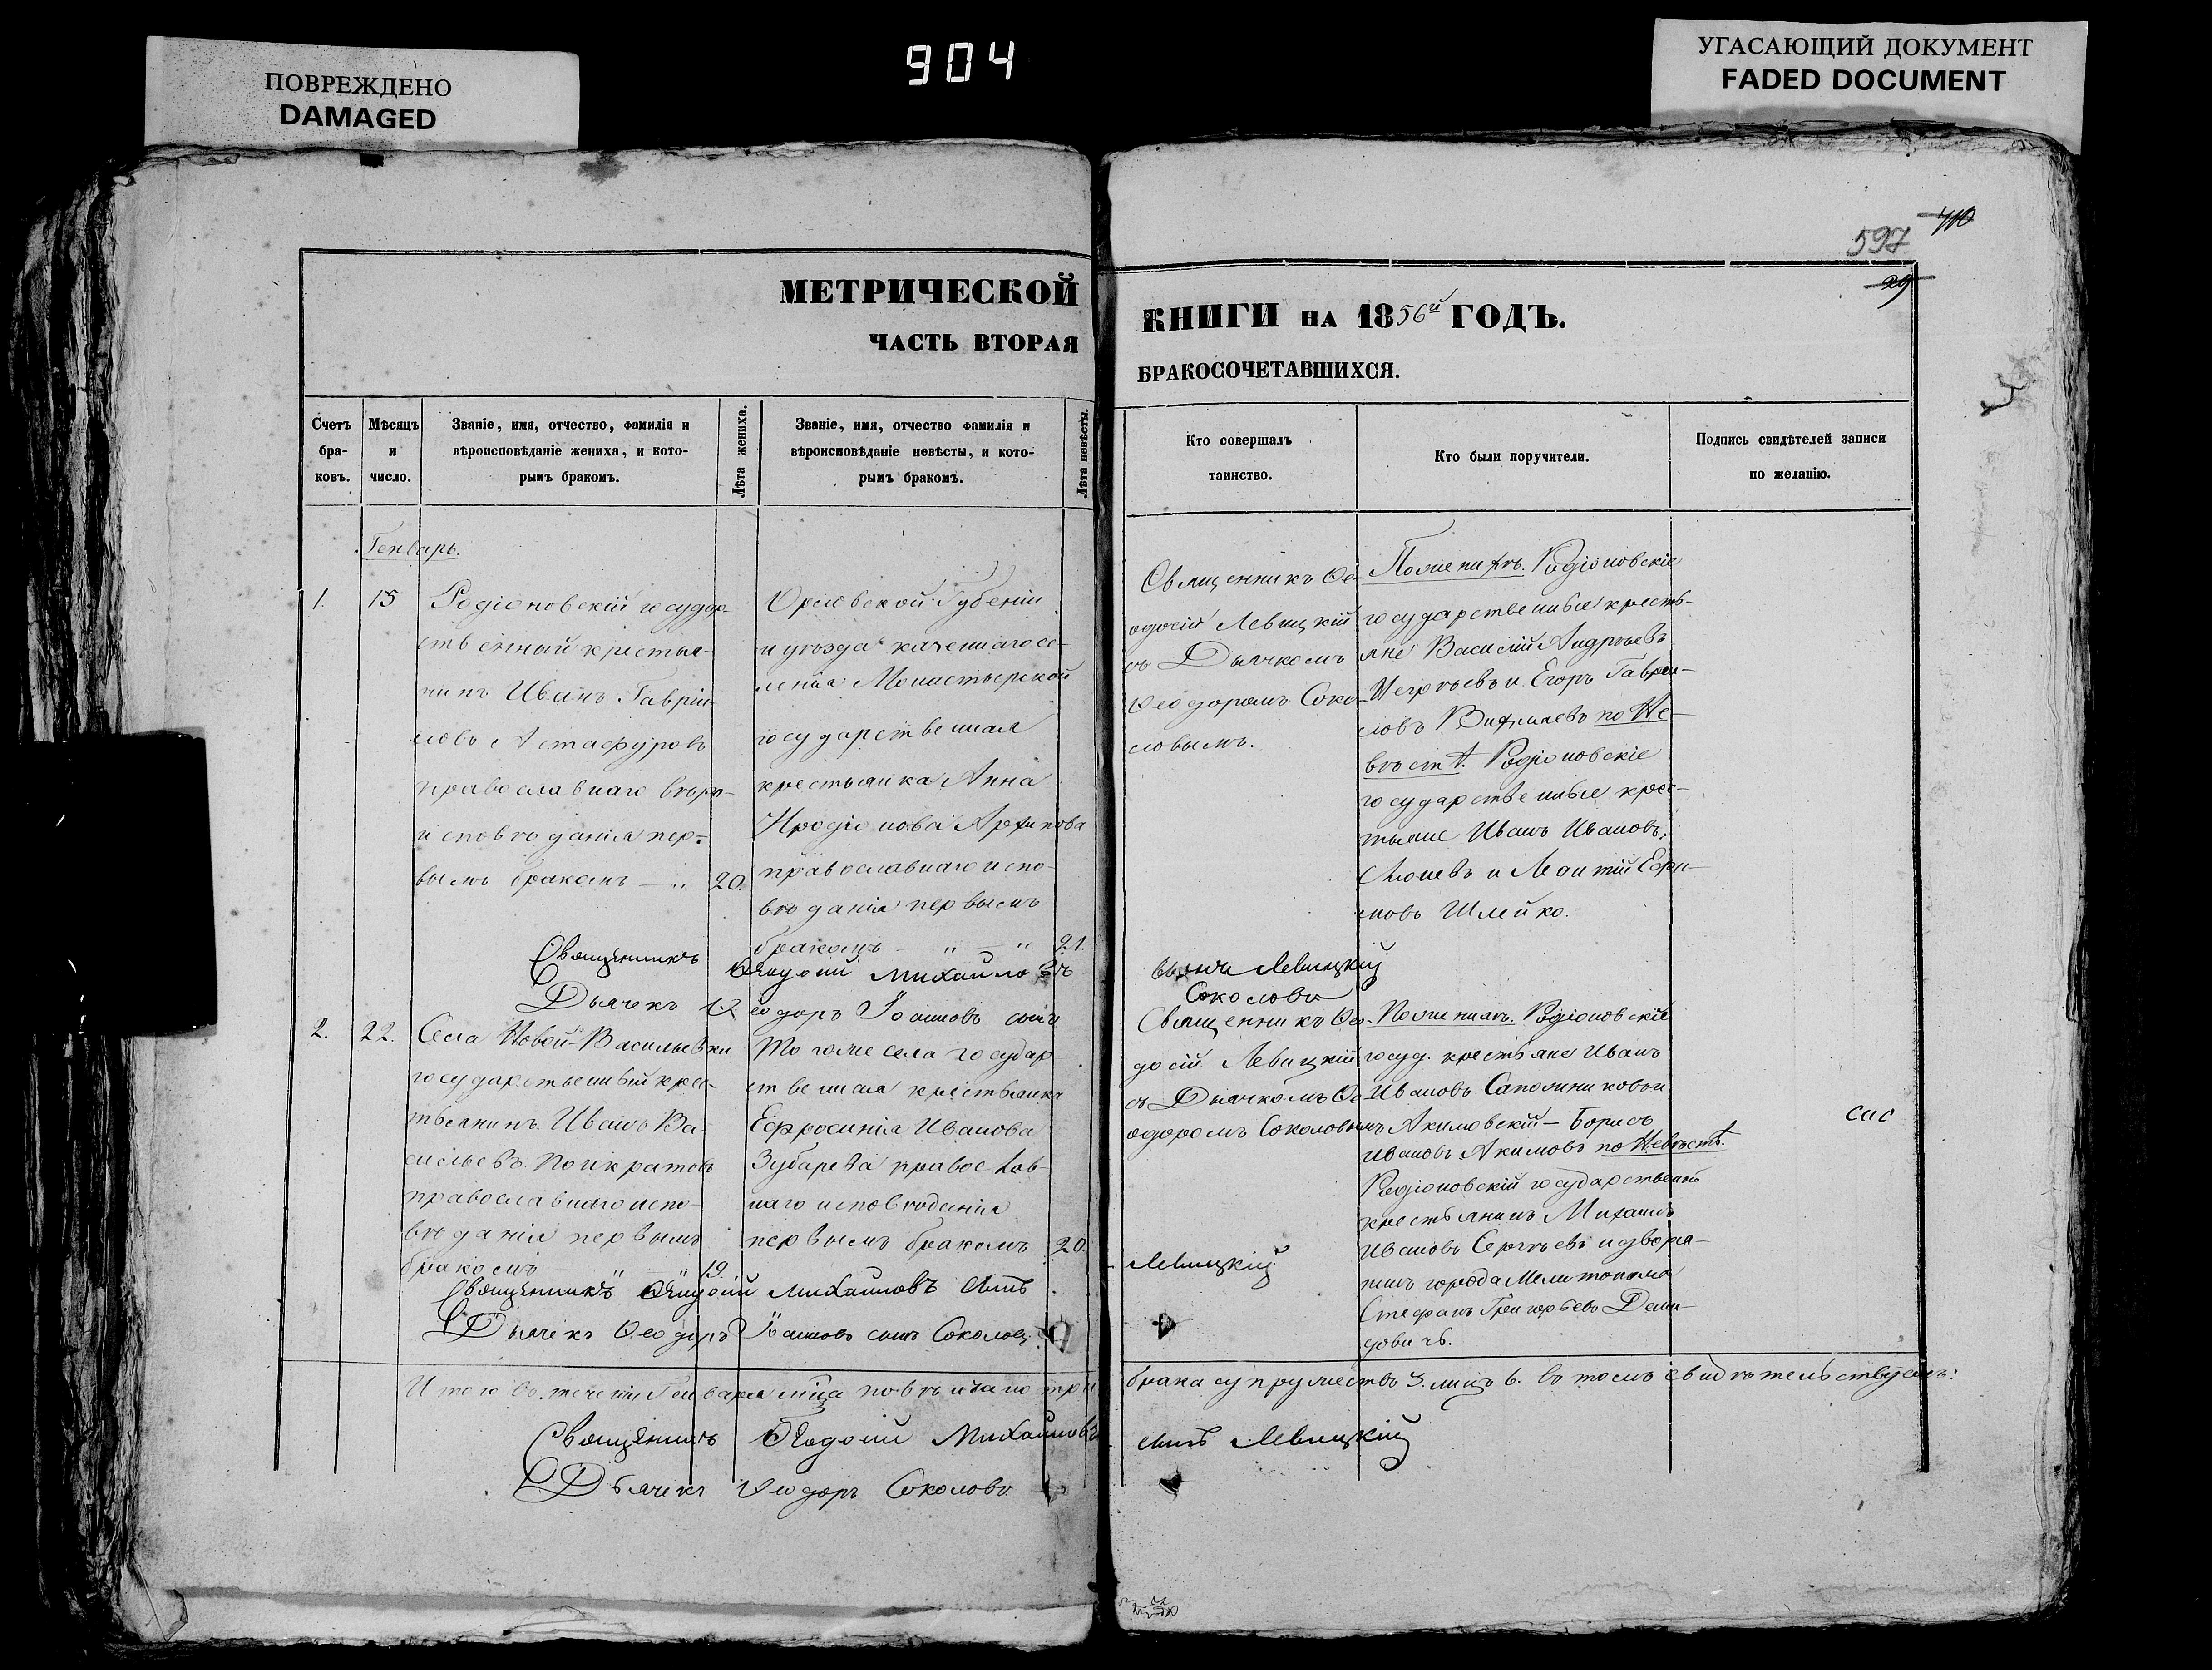 ПОВРЕЖДЕНО
DAMAGED
904
УГАСАЮЩИЙ ДОКУМЕНТ
FADED DOCUMENT
597
29
МЕТРИЧЕСКОЙ
ЧАСТЬ ВТОРАЯ
КНИГИ НА 1856й ГОДЪ.
БРАКОСОЧЕТАВШИХСЯ.
Счетъ
бра-
ковъ.
Мѣсяцъ
и
число.
Званіе, имя, отчество, фамилія и
вѣроисповѣданіе жениха, и кото-
рымъ бракомъ.
Лѣта жениха.
Званіе, имя, отчество фамилія и
вѣроисповѣданіе невѣсты, и кото-
рымъ бракомъ.
Лѣта невѣсты.
Кто совершалъ
таинство.
Кто были поручители.
Подпись свидѣтелей записи
по желанію.
Генварь.
1.
15
Родіоновскій государ-
ственный крестья-
нинъ Иванъ Гавріи-
ловъ Астафуровъ
православнаго вѣро-
исповѣданія пер-
вымъ бракомъ — " 20.
Орловской Губерніи
и уѣзда казеннаго се-
ленія Монастырской
государственная
крестьянка Анна
Иродіонова Архипова
православнаго испо-
вѣданія первымъ
бракомъ — " — " 21.
Священникъ Ѳе-
одосій Левицкій
съ Дьячкомъ
Ѳеодоромъ Соко-
ловымъ.
По жениху. Родіоновскіе
государственные кресть-
яне Василій Андреевъ
и Егоръ Гаври-
ловъ по Не-
вѣстѣ. Родіоновскіе
государственные крес-
тьяне Иванъ Ивановъ
и Леонтій Ефи-
мовъ Шлейко.
Священникъ Ѳеодосій Михайловъ Левицкій
Дьячекъ Ѳеодоръ Іоанновъ сынъ Соколовъ
2.
22.
Села Новой-Васильевки
государственный крес-
тьянинъ Иванъ Ва-
сильевъ Понкратовъ
православнаго испо-
вѣданія первымъ
бракомъ " — " 19.
Того же села государ-
ственная крестьянка
Ефросинія Иванова
Зубарева православ-
наго исповѣданія
первымъ бракомъ 20.
Священникъ Ѳео-
досій Левицкій
съ Дьячкомъ Ѳе-
одоромъ Соколовымъ
По жениху. Родіоновскіе
госуд. крестьяне Иванъ
Ивановъ Сапожниковъ и
Акимовскій — Борисъ
Ивановъ Акимовъ по Невѣстѣ.
Родіоновскій государственный
крестьянинъ Михаилъ
Ивановъ Сергѣевъ и дворя-
нинъ города Мелитополя
Стефанъ Григорьевъ Деми-
довичъ.
Священникъ Ѳеодосій Михайловъ сынъ Левицкій
Дьячекъ Ѳеодоръ Іоанновъ сынъ Соколовъ
Итого въ теченіи Генваря мѣсяца повѣнчано три брака супружествъ 3. лицъ 6. въ томъ свидѣтельствуемъ:
Священникъ Ѳеодосій Михайловъ сынъ Левицкій
Дьячекъ Ѳеодоръ Соколовъ